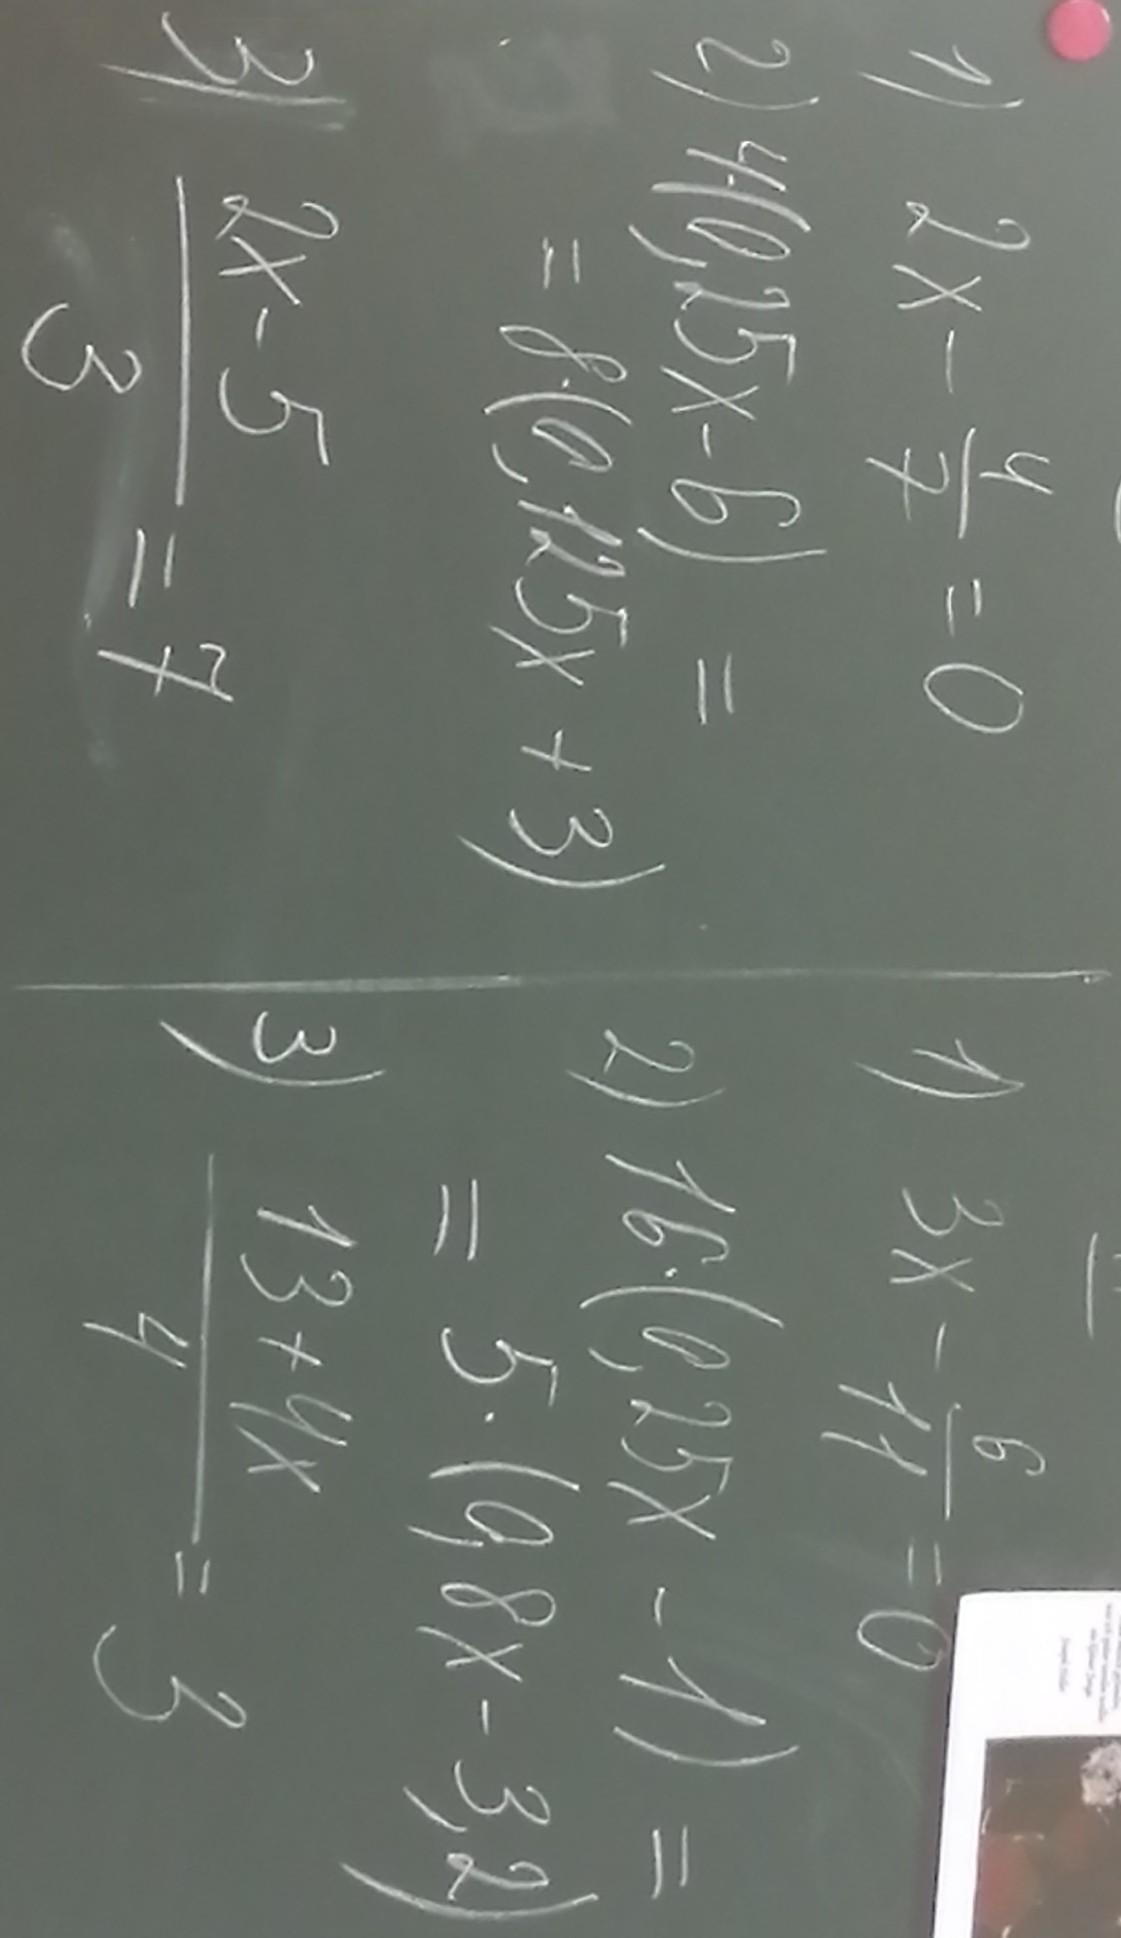 1) 2x - 4/7 = 0
2) 4·(0,25x - 6) =
= 8·(0,125x + 3)
3) (2x - 5)/3 = 7
1) 3x - 6/11 = 0
2) 16·(0,25x - 1) =
= 5·(0,8x - 3,2)
3) (13 + 4x)/4 = 3